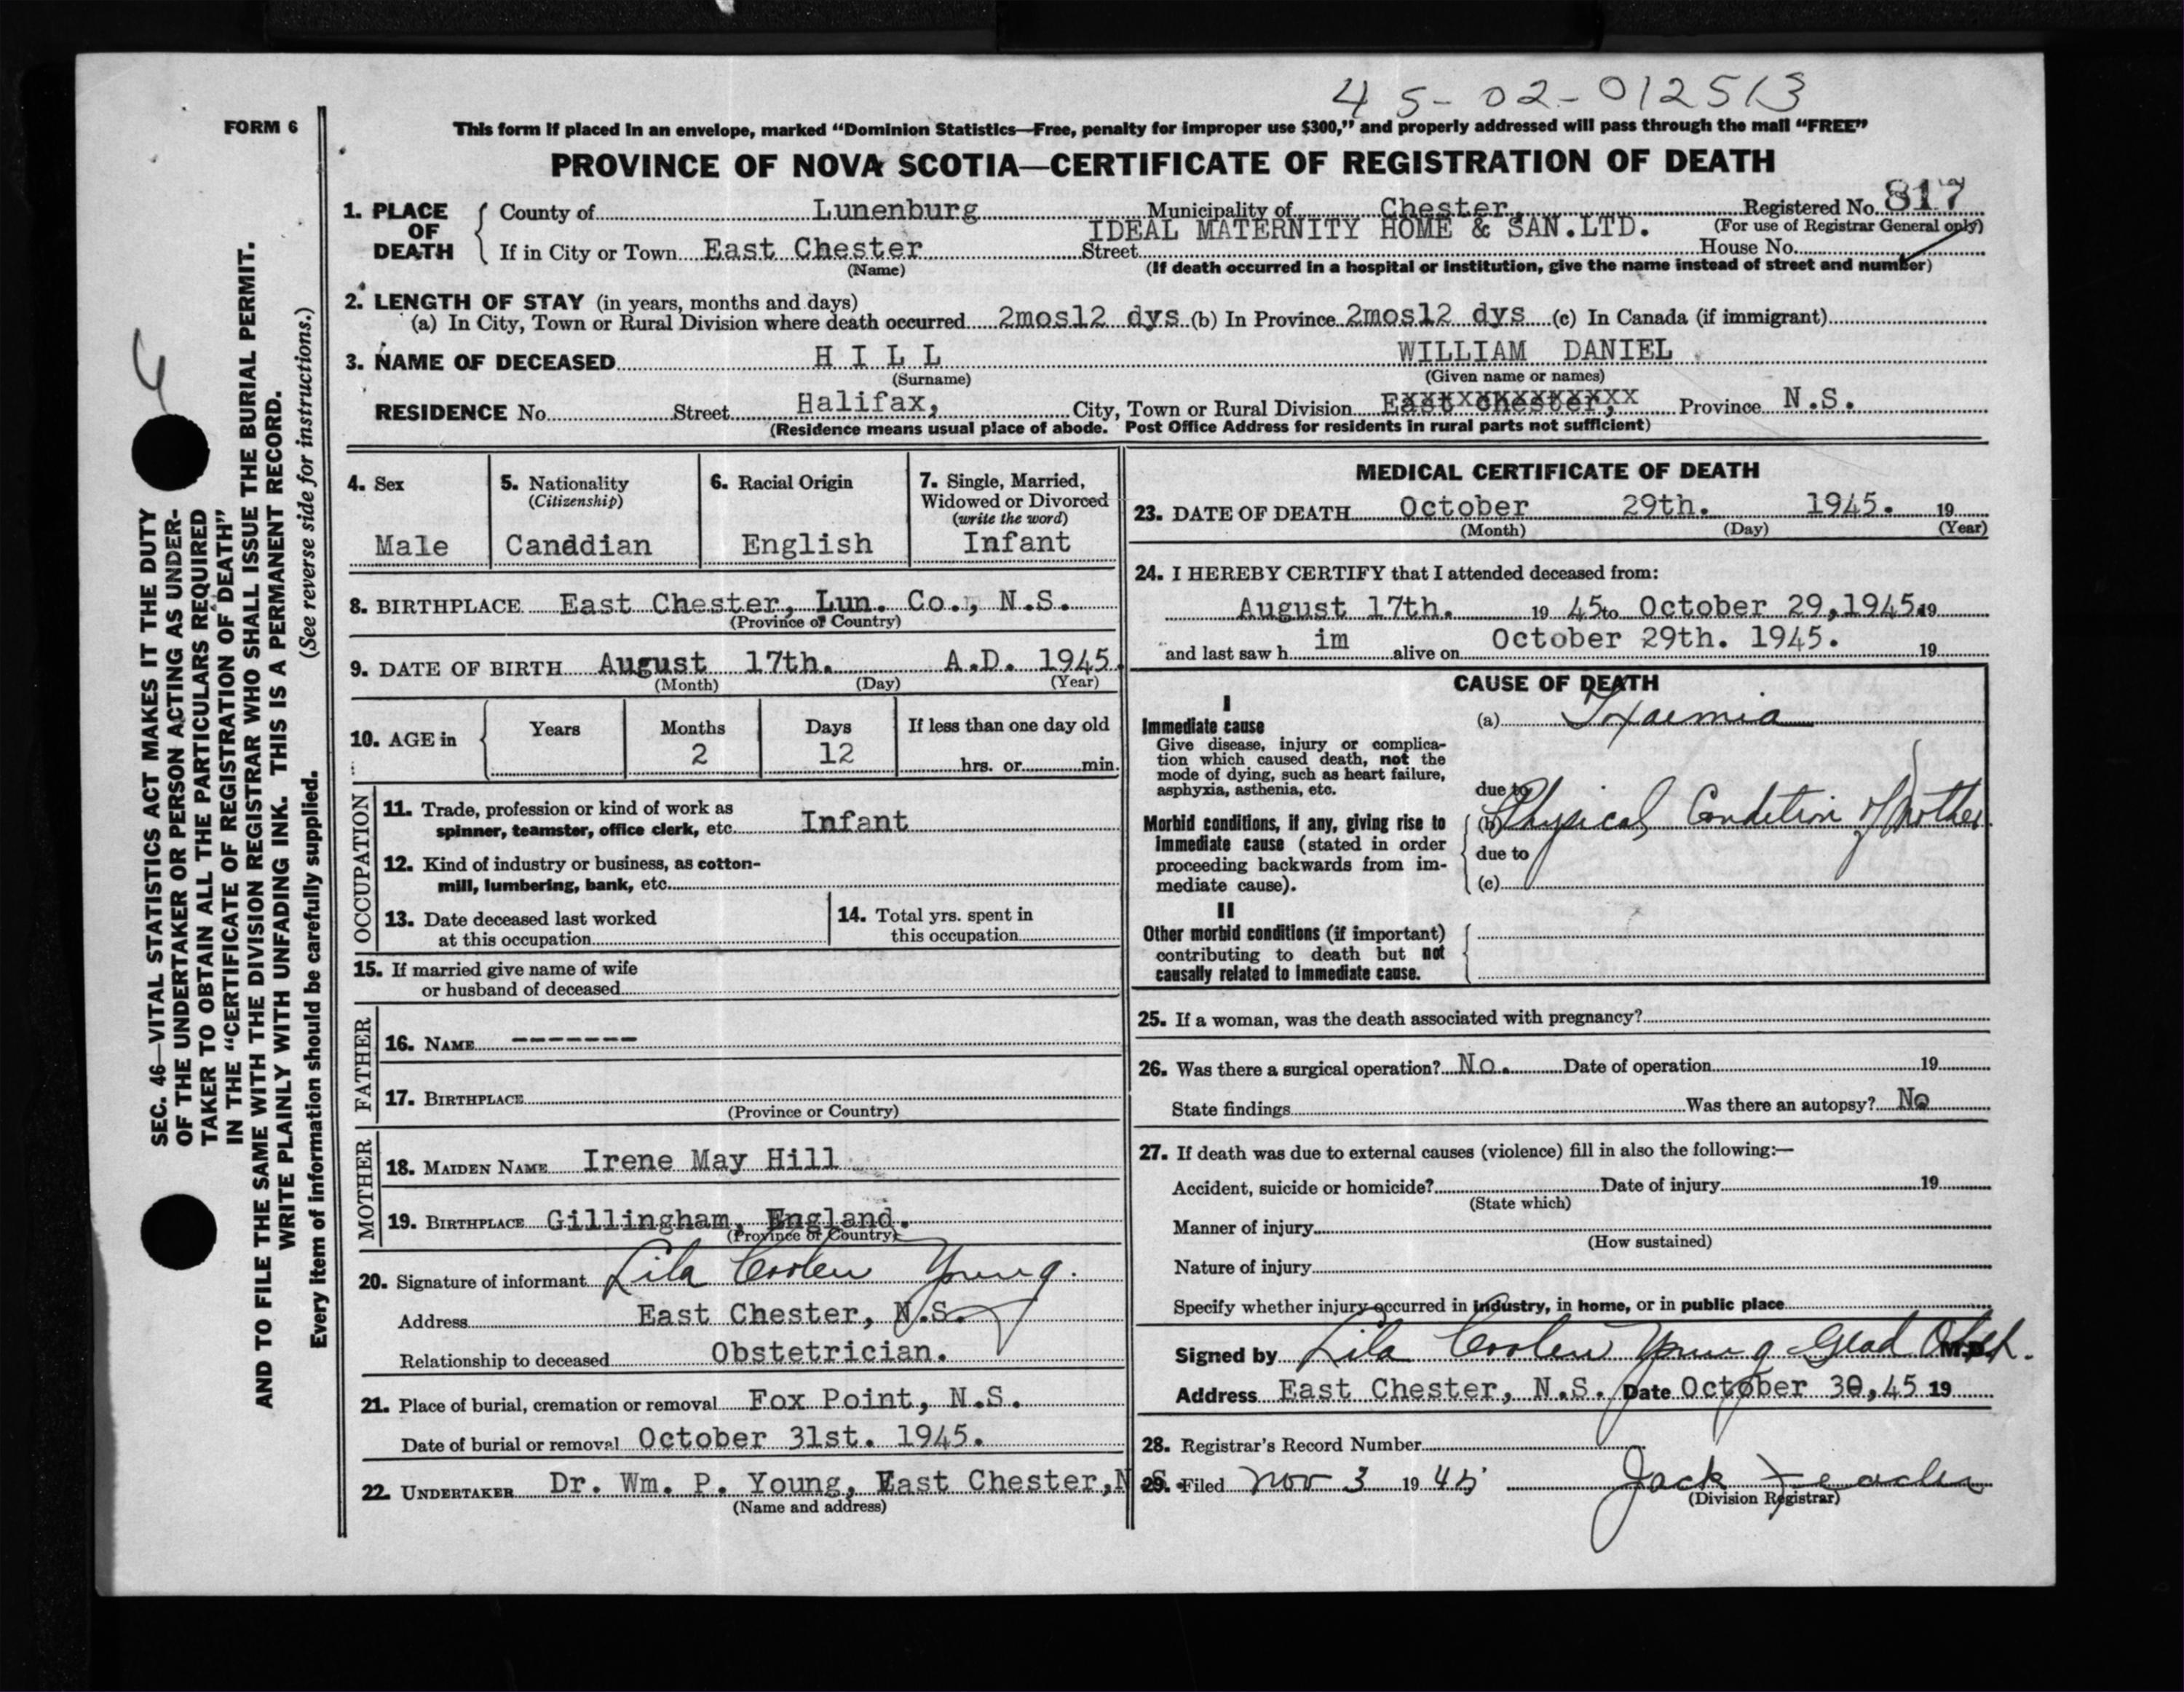 45-02-012513
FORM 6
This form if placed in an envelope, marked "Dominion Statistics—Free, penalty for improper use $300," and properly addressed will pass through the mail "FREE"
PROVINCE OF NOVA SCOTIA—CERTIFICATE OF REGISTRATION OF DEATH
1. PLACE OF DEATH
County of Lunenburg Municipality of Chester, Registered No. 817
(For use of Registrar General only)
IDEAL MATERNITY HOME & SAN.LTD.
If in City or Town East Chester Street House No.
(Name) (If death occurred in a hospital or institution, give the name instead of street and number)
2. LENGTH OF STAY (in years, months and days)
(a) In City, Town or Rural Division where death occurred 2mos12 dys (b) In Province 2mos12 dys (c) In Canada (if immigrant)
3. NAME OF DECEASED H I L L WILLIAM DANIEL
(Surname) (Given name or names)
RESIDENCE No. Street Halifax, City, Town or Rural Division East Chester, Province N.S.
(Residence means usual place of abode. Post Office Address for residents in rural parts not sufficient)
4. Sex
Male
5. Nationality
(Citizenship)
Canadian
6. Racial Origin
English
7. Single, Married,
Widowed or Divorced
(write the word)
Infant
8. BIRTHPLACE East Chester, Lun. Co., N.S.
(Province or Country)
9. DATE OF BIRTH August 17th. A.D. 1945.
(Month) (Day) (Year)
10. AGE in
Years Months Days If less than one day old
2 12 hrs. or min.
OCCUPATION
11. Trade, profession or kind of work as
spinner, teamster, office clerk, etc. Infant
12. Kind of industry or business, as cotton-
mill, lumbering, bank, etc.
13. Date deceased last worked
at this occupation
14. Total yrs. spent in
this occupation
15. If married give name of wife
or husband of deceased
FATHER
16. NAME -------
17. BIRTHPLACE
(Province or Country)
MOTHER
18. MAIDEN NAME Irene May Hill
19. BIRTHPLACE Gillingham, England.
(Province or Country)
20. Signature of informant Lila Coolen Young.
Address East Chester, N.S.
Relationship to deceased Obstetrician.
21. Place of burial, cremation or removal Fox Point, N.S.
Date of burial or removal October 31st. 1945.
22. UNDERTAKER Dr. Wm. P. Young, East Chester,N.S.
(Name and address)
MEDICAL CERTIFICATE OF DEATH
23. DATE OF DEATH October 29th. 1945. 19
(Month) (Day) (Year)
24. I HEREBY CERTIFY that I attended deceased from:
August 17th. 19 45 to October 29,1945. 19
and last saw h im alive on October 29th. 1945. 19
CAUSE OF DEATH
I
Immediate cause
Give disease, injury or complica-
tion which caused death, not the
mode of dying, such as heart failure,
asphyxia, asthenia, etc.
(a) Toxaemia
due to
Morbid conditions, if any, giving rise to
immediate cause (stated in order
proceeding backwards from im-
mediate cause).
(b) Physical Condition of Mother
due to
(c)
II
Other morbid conditions (if important)
contributing to death but not
causally related to immediate cause.
25. If a woman, was the death associated with pregnancy?
26. Was there a surgical operation? No. Date of operation 19
State findings Was there an autopsy? No
27. If death was due to external causes (violence) fill in also the following:—
Accident, suicide or homicide? Date of injury 19
(State which)
Manner of injury
(How sustained)
Nature of injury
Specify whether injury occurred in industry, in home, or in public place
Signed by Lila Coolen Young Grad M.D.
Address East Chester, N.S. Date October 30,45 19
28. Registrar's Record Number
29. Filed Nov 3 19 45 Jack
(Division Registrar)
SEC. 46—VITAL STATISTICS ACT MAKES IT THE DUTY
OF THE UNDERTAKER OR PERSON ACTING AS UNDER-
TAKER TO OBTAIN ALL THE PARTICULARS REQUIRED
IN THE "CERTIFICATE OF REGISTRATION OF DEATH"
AND TO FILE THE SAME WITH THE DIVISION REGISTRAR WHO SHALL ISSUE THE BURIAL PERMIT.
WRITE PLAINLY WITH UNFADING INK. THIS IS A PERMANENT RECORD.
Every item of information should be carefully supplied. (See reverse side for instructions.)